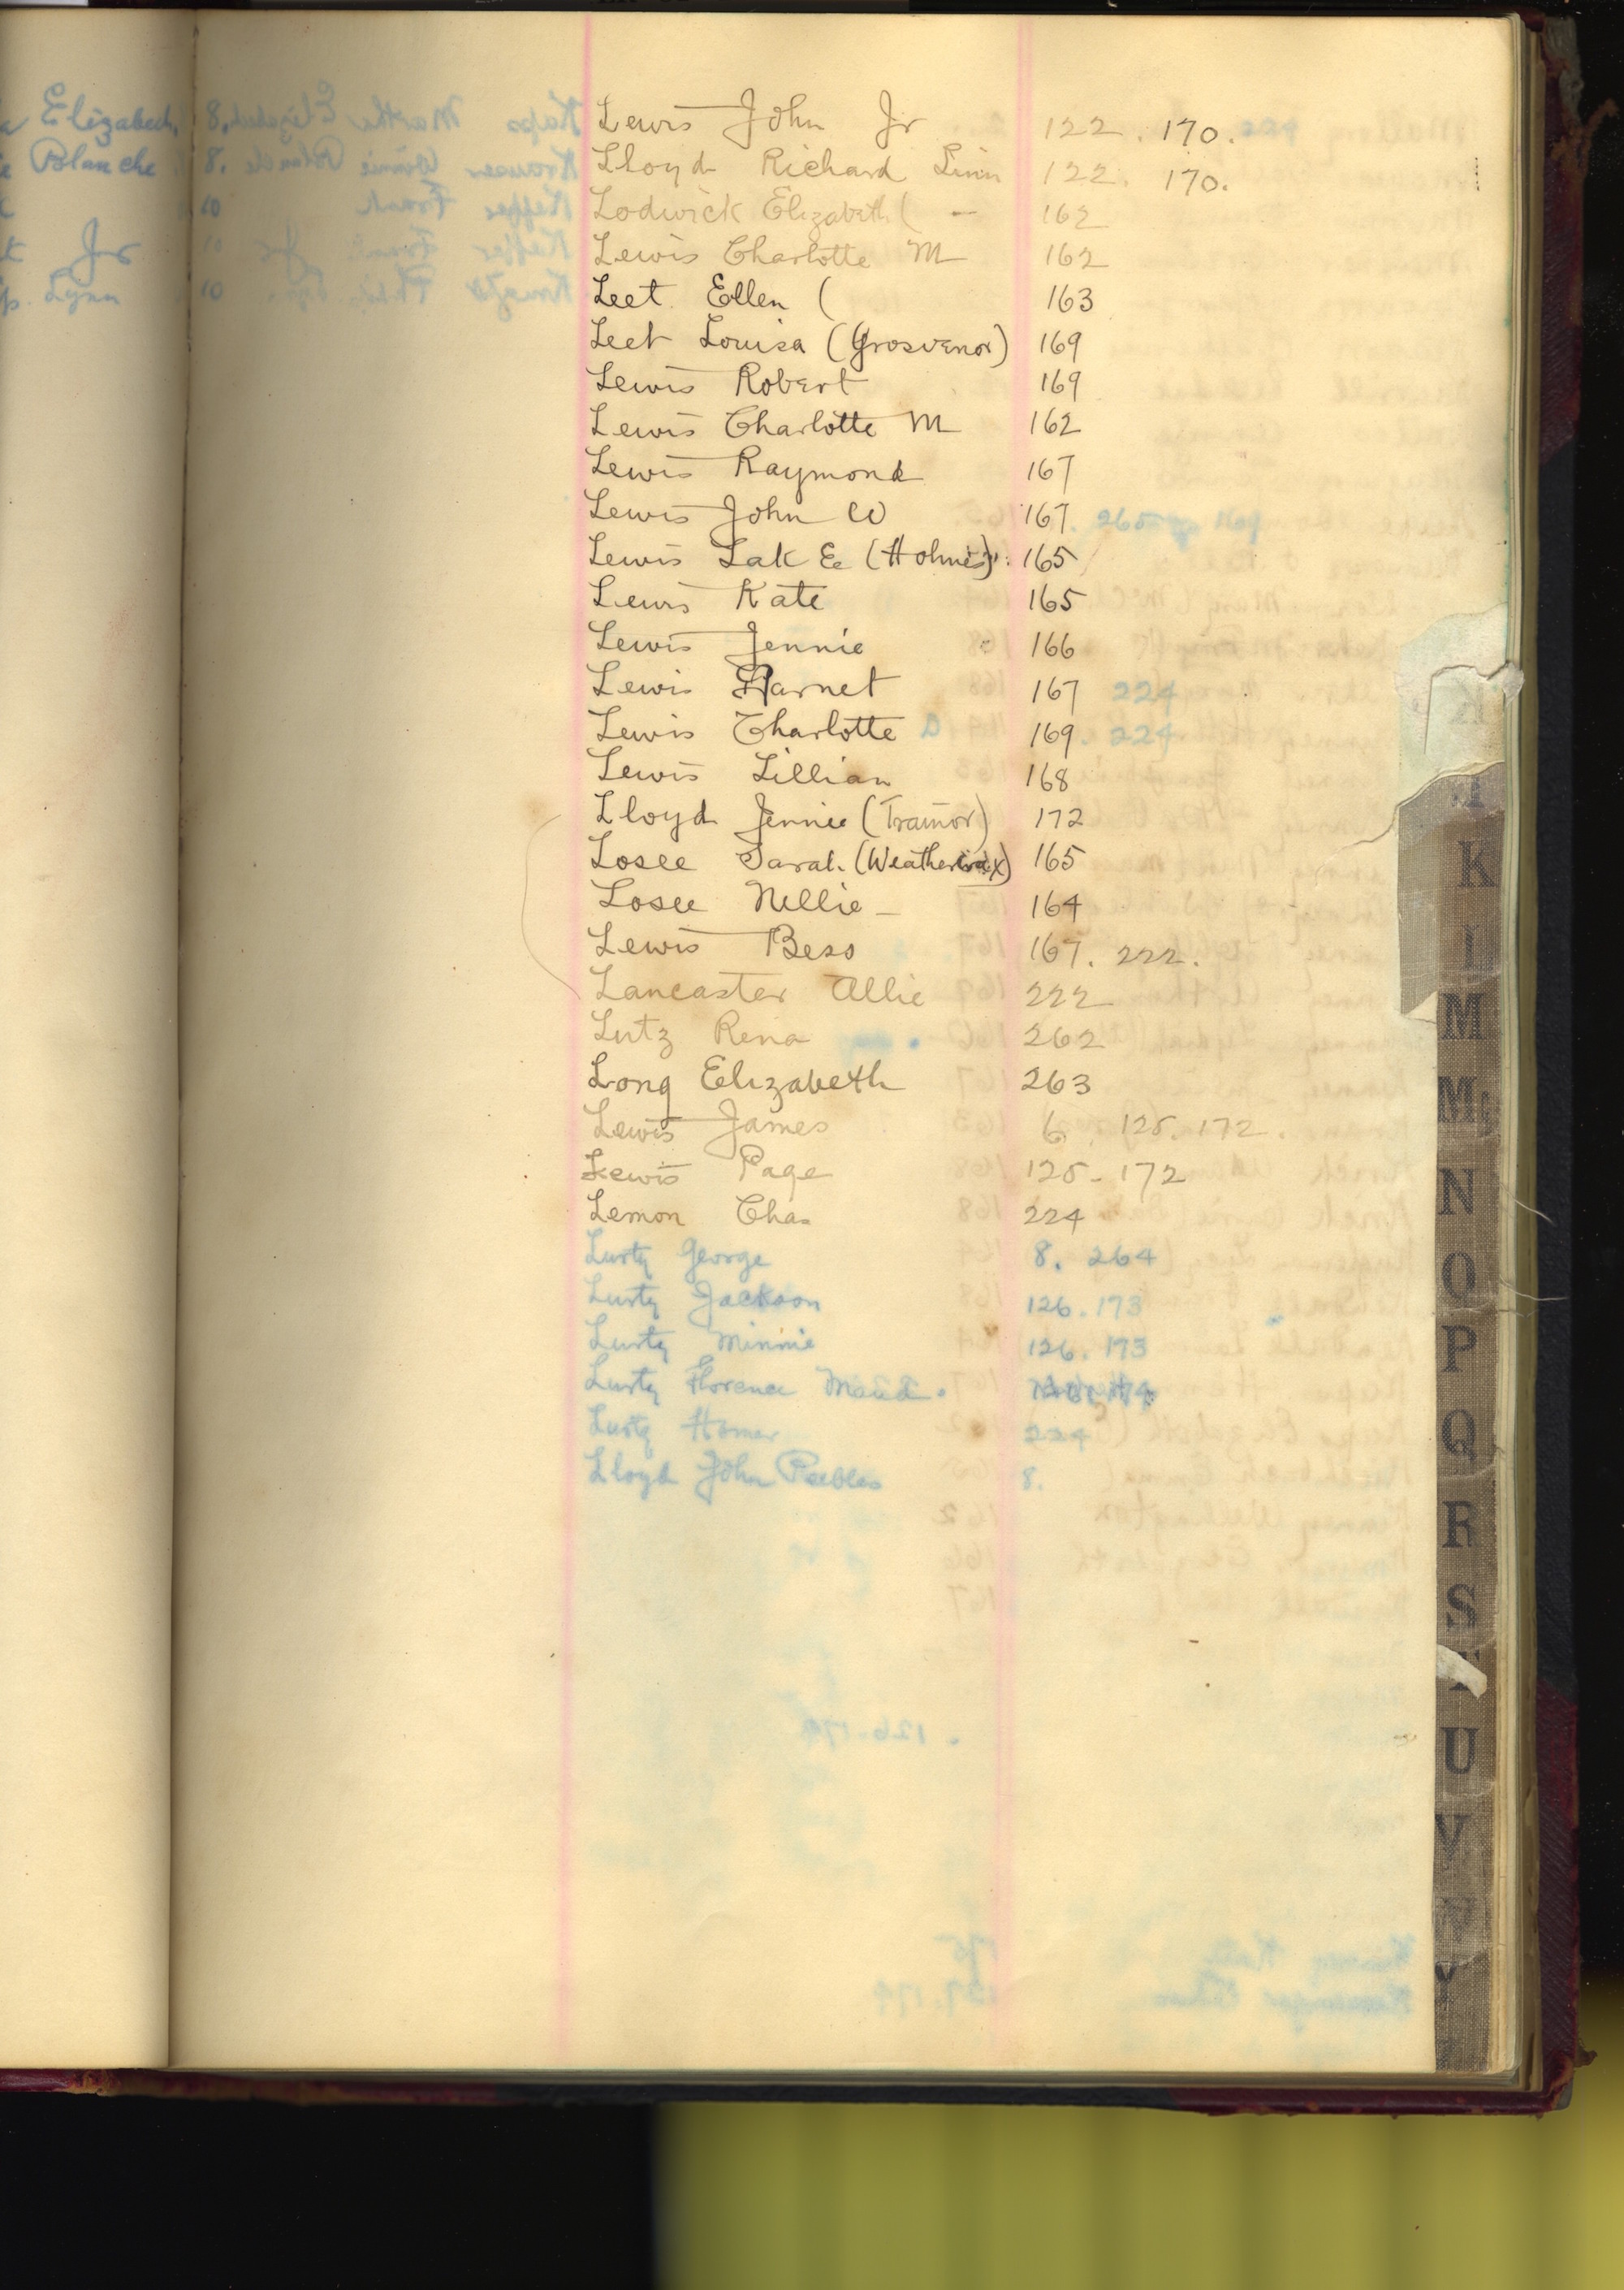 Elizabeth
Blanche
Jr
Lynn
Lewis John Jr 122. 170. 224
Lloyd Richard Linn 122. 170.
Lodwick Elizabeth ( — 162
Lewis Charlotte M 162
Leet Ellen ( 163
Leet Louisa (Grosvenor) 169
Lewis Robert 169
Lewis Charlotte M 162
Lewis Raymond 167
Lewis John W 167. 265
Lewis Lak E (Holmes) 165
Lewis Kate 165
Lewis Jennie 166
Lewis Harriet 167 224
Lewis Charlotte A 169. 224
Lewis Lillian 168
Lloyd Jennie (Trainor) 172
Losee Sarah (Weatherwax) 165
Losee Nellie — 164
Lewis Bess 167. 222.
Lancaster Allie 222
Lutz Rena 262
Long Elizabeth 263
Lewis James 6. 125. 172.
Lewis Page 125. 172
Lemon Chas 224
Lusty George 8. 264
Lusty Jackson 126. 173
Lusty Minnie 126. 173
Lusty Florence Maud.
Lusty Homer 224
Lloyd John Peebles 8.
K
M
N
O
P
Q
R
S
U
V